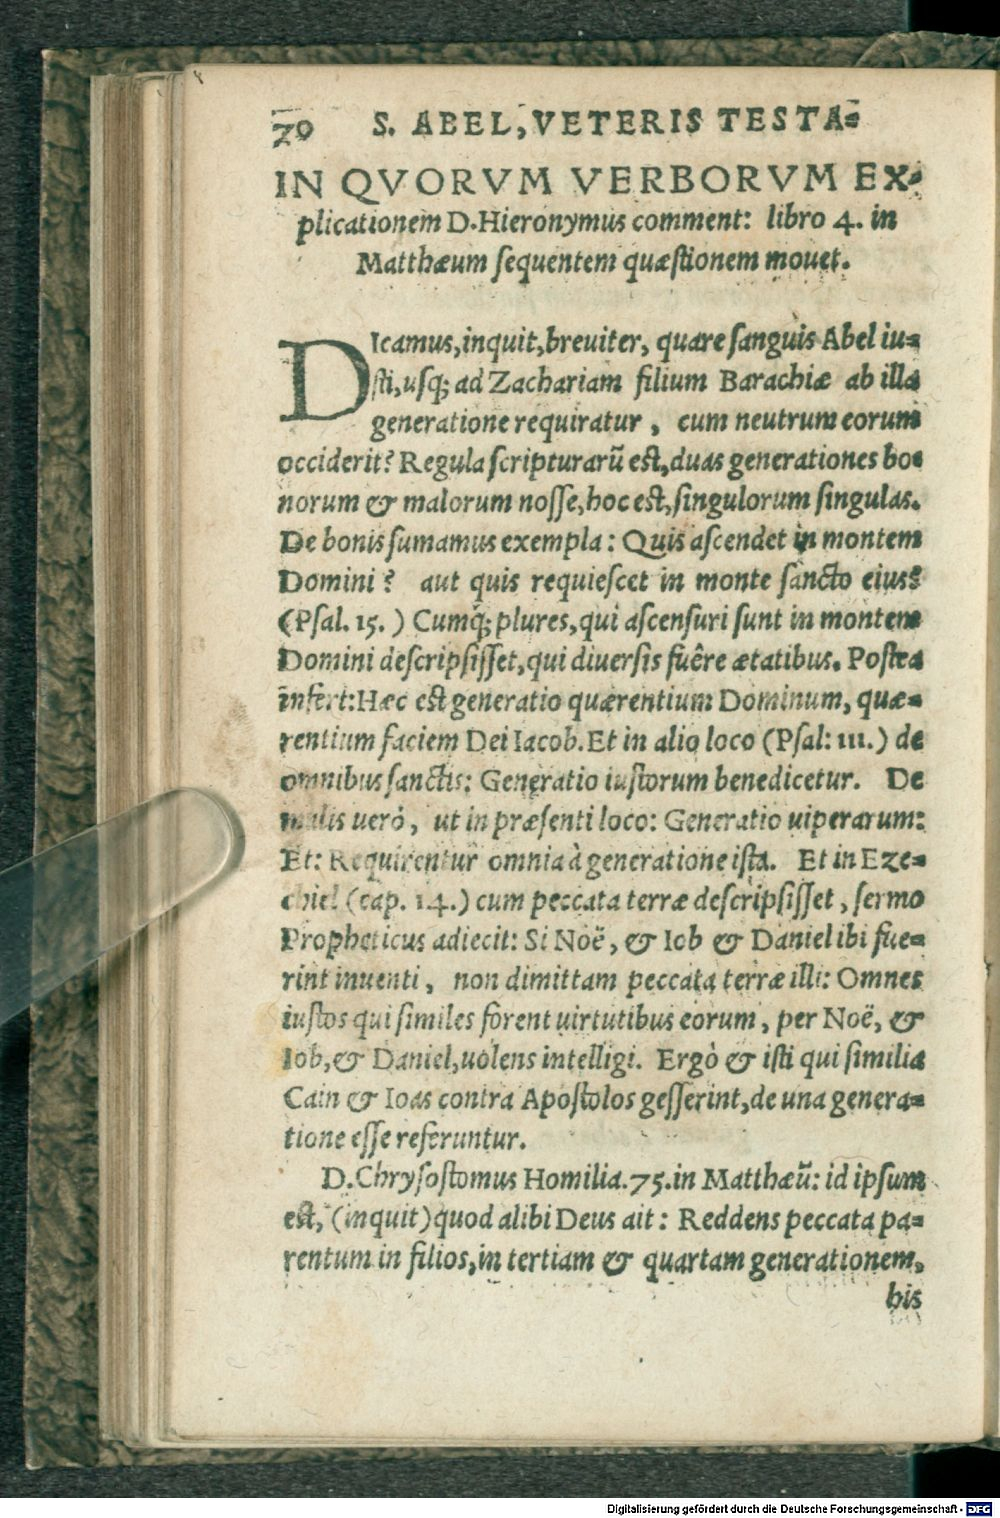 70 S. ABEL, VETERIS TESTA-
IN QVORVM VERBORVM EX-
plicationem D. Hieronymus comment: libro 4. in
Matthæum sequentem quæstionem mouet.
DIcamus, inquit, breuiter, quare sanguis Abel iu-
sti, usq; ad Zachariam filium Barachiæ ab illa
generatione requiratur, cum neutrum eorum
occiderit? Regula scripturarũ est, duas generationes bo-
norum & malorum nosse, hoc est, singulorum singulas.
De bonis sumamus exempla: Quis ascendet in montem
Domini? aut quis requiescet in monte sancto eius?
(Psal. 15.) Cumq́; plures, qui ascensuri sunt in montem
Domini descripsisset, qui diuersis fuêre ætatibus. Postea
infert: Hæc est generatio quærentium Dominum, quæ-
rentium faciem Dei Iacob. Et in alio loco (Psal: 111.) de
omnibus sanctis: Generatio iustorum benedicetur. De
malis uerò, ut in præsenti loco: Generatio uiperarum:
Et: Requirentur omnia à generatione ista. Et in Eze-
chiel (cap. 14.) cum peccata terræ descripsisset, sermo
Propheticus adiecit: Si Noë, & Iob & Daniel ibi fue-
rint inuenti, non dimittam peccata terræ illi: Omnes
iustos qui similes forent uirtutibus eorum, per Noë, &
Iob, & Daniel, uolens intelligi. Ergò & isti qui similia
Cain & Ioas contra Apostolos gesserint, de una genera-
tione esse referuntur.
D. Chrysostomus Homilia. 75. in Matthæũ: id ipsum
est, (inquit) quod alibi Deus ait: Reddens peccata pa-
rentum in filios, in tertiam & quartam generationem,
his
Digitalisierung gefördert durch die Deutsche Forschungsgemeinschaft - DFG